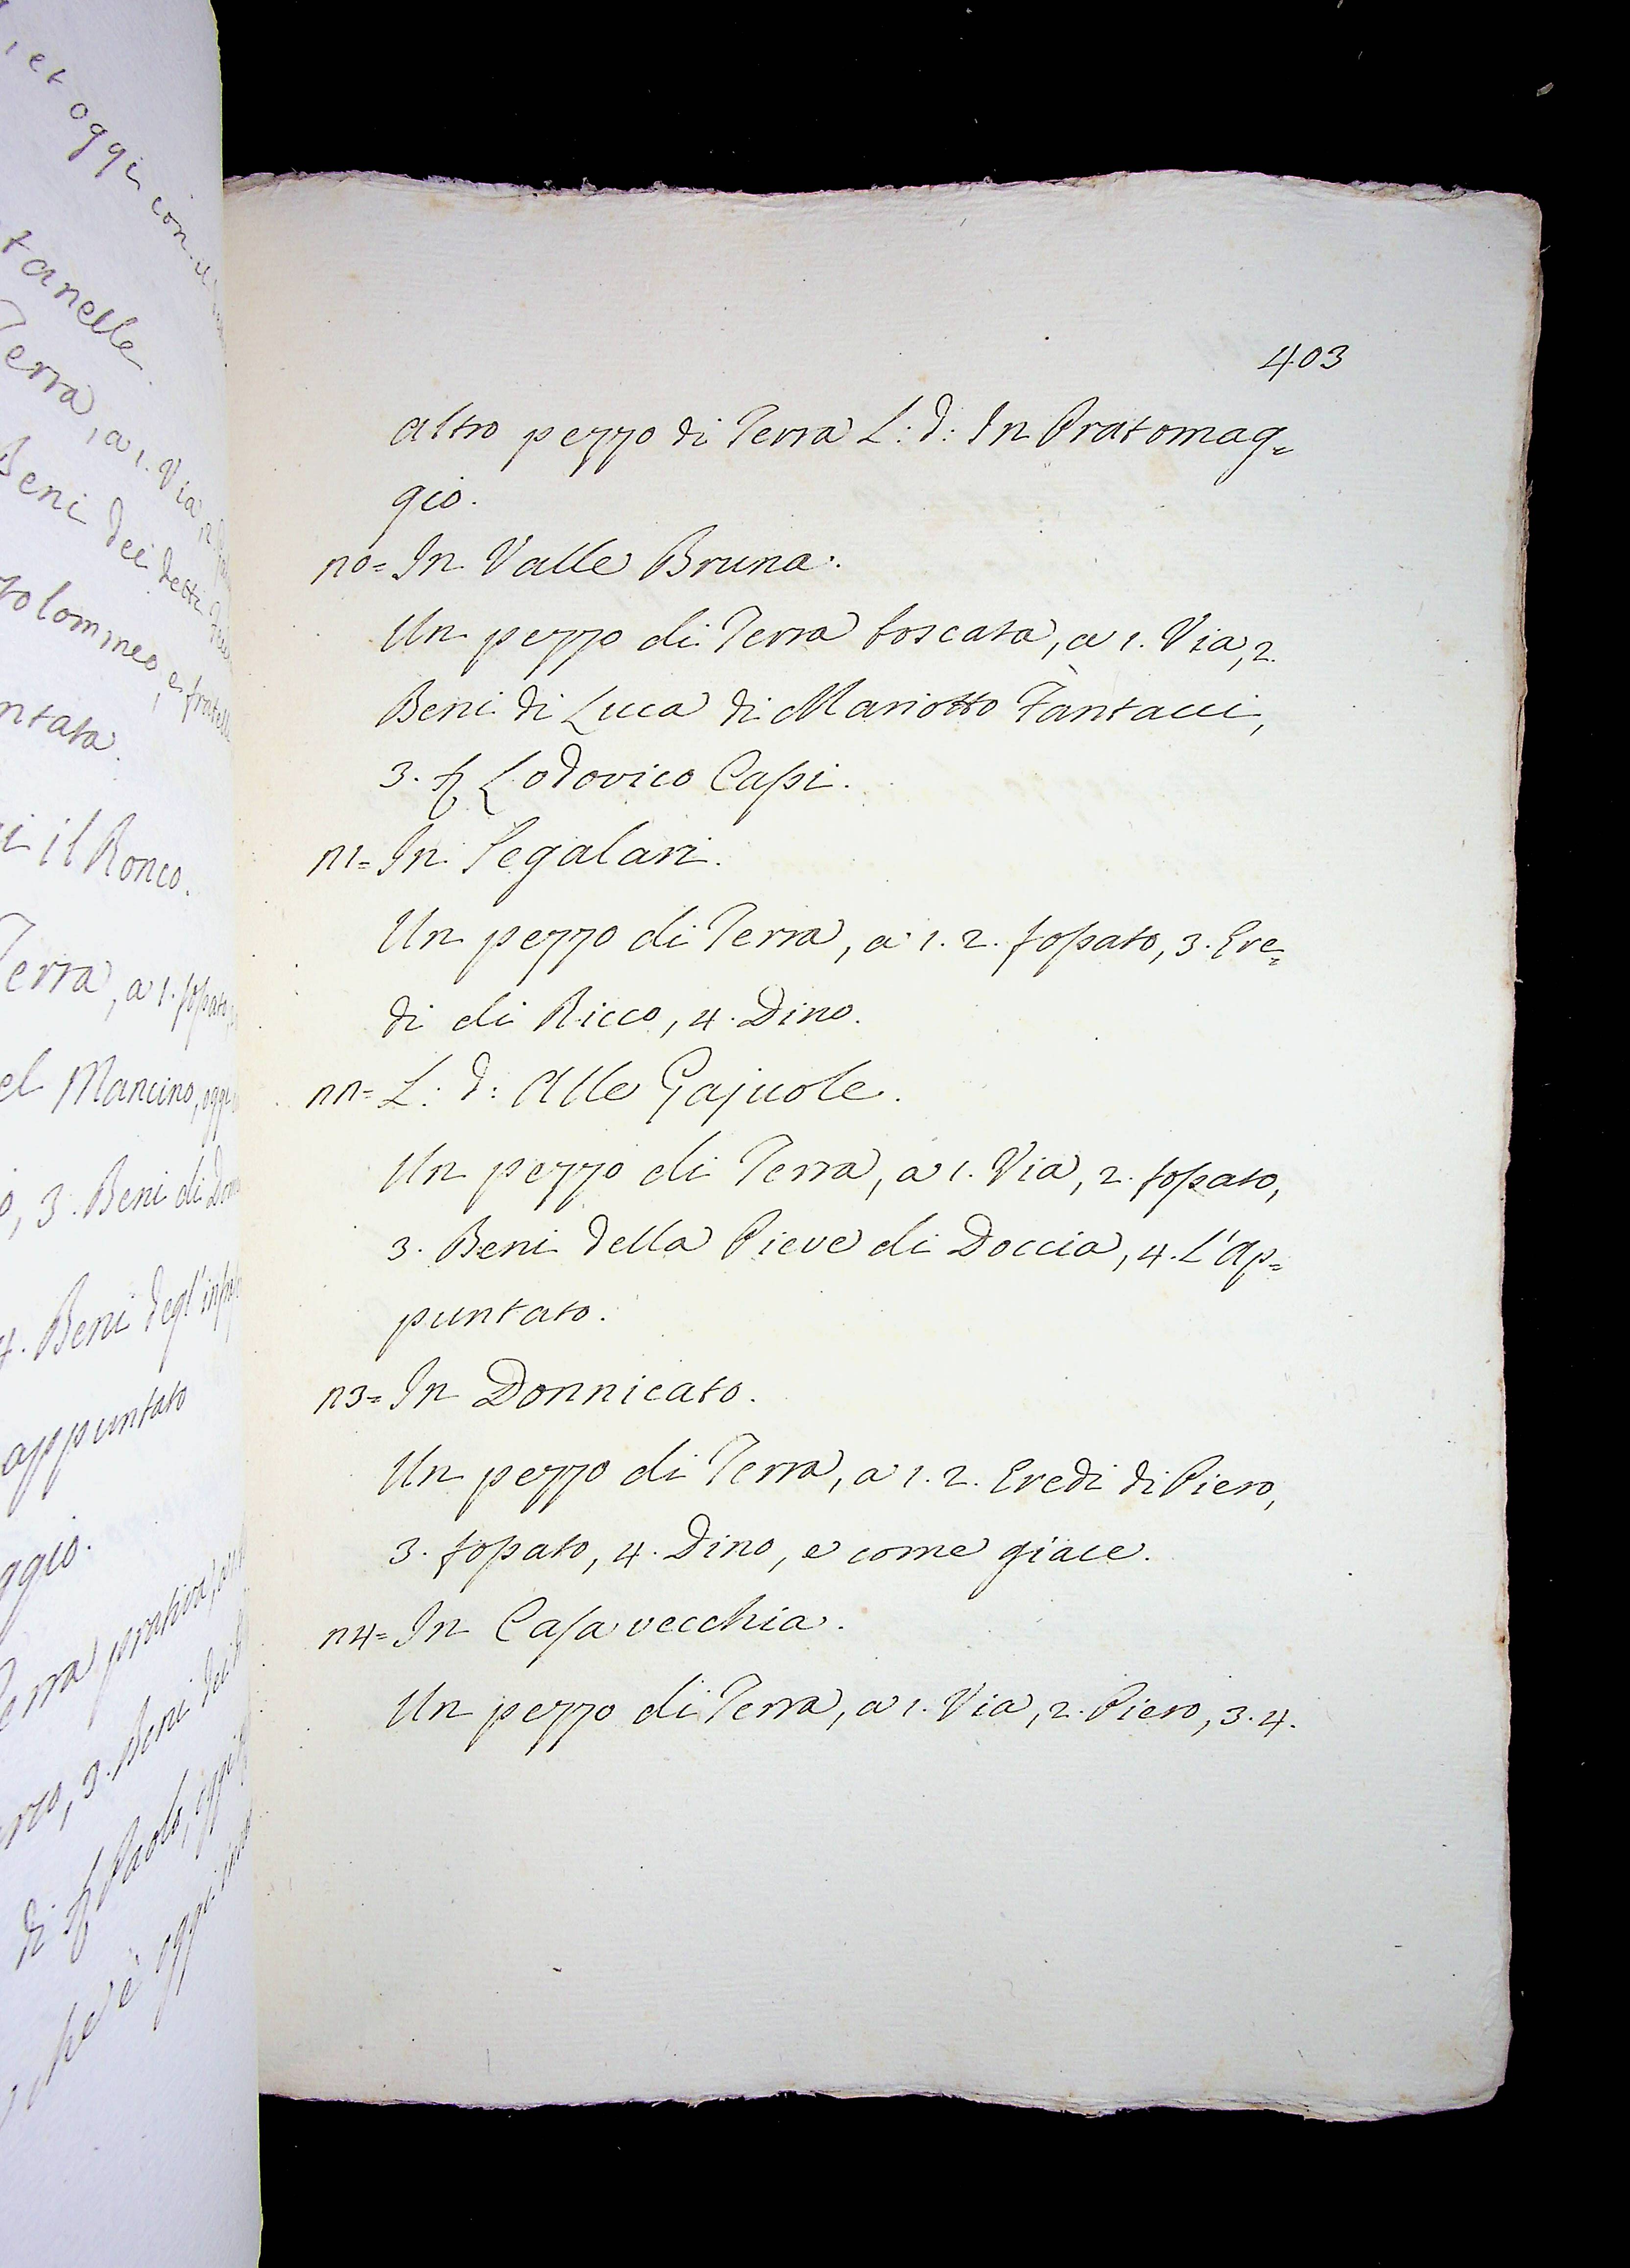 et oggi con
tanelle.
Terra, a 1. Via, 2
Beni dei detti
tolommeo, e fratelli
ntata.
i il Ronco.
Terra, a 1. fossato,
el Mancino, oggi
o, 3. Beni di Dom
4. Beni degl'infras
appuntato
ggio.
erra prativa, a 1.
rco, 3. Beni dei
di Sr Paolo, oggi
che è oggi
403
Altro pezzo di Terra L: d: In Pratomag=
gio.
20= In Valle Bruna.
Un pezzo di Terra boscata, a 1. Via, 2.
Beni di Luca di Mariotto Fantacci,
3. Sr Lodovico Cassi.
21= In Segalari.
Un pezzo di Terra, a 1. 2. fossato, 3. Ere=
di di Ricco, 4. Dino.
22= L: d: Alle Gajuole.
Un pezzo di Terra, a 1. Via, 2. fossato,
3. Beni della Pieve di Doccia, 4. L'Ap=
puntato.
23= In Donnicato.
Un pezzo di Terra, a 1. 2. Eredi di Piero,
3. fossato, 4. Dino, e come giace.
24= In Casa vecchia.
Un pezzo di Terra, a 1. Via, 2. Piero, 3. 4.